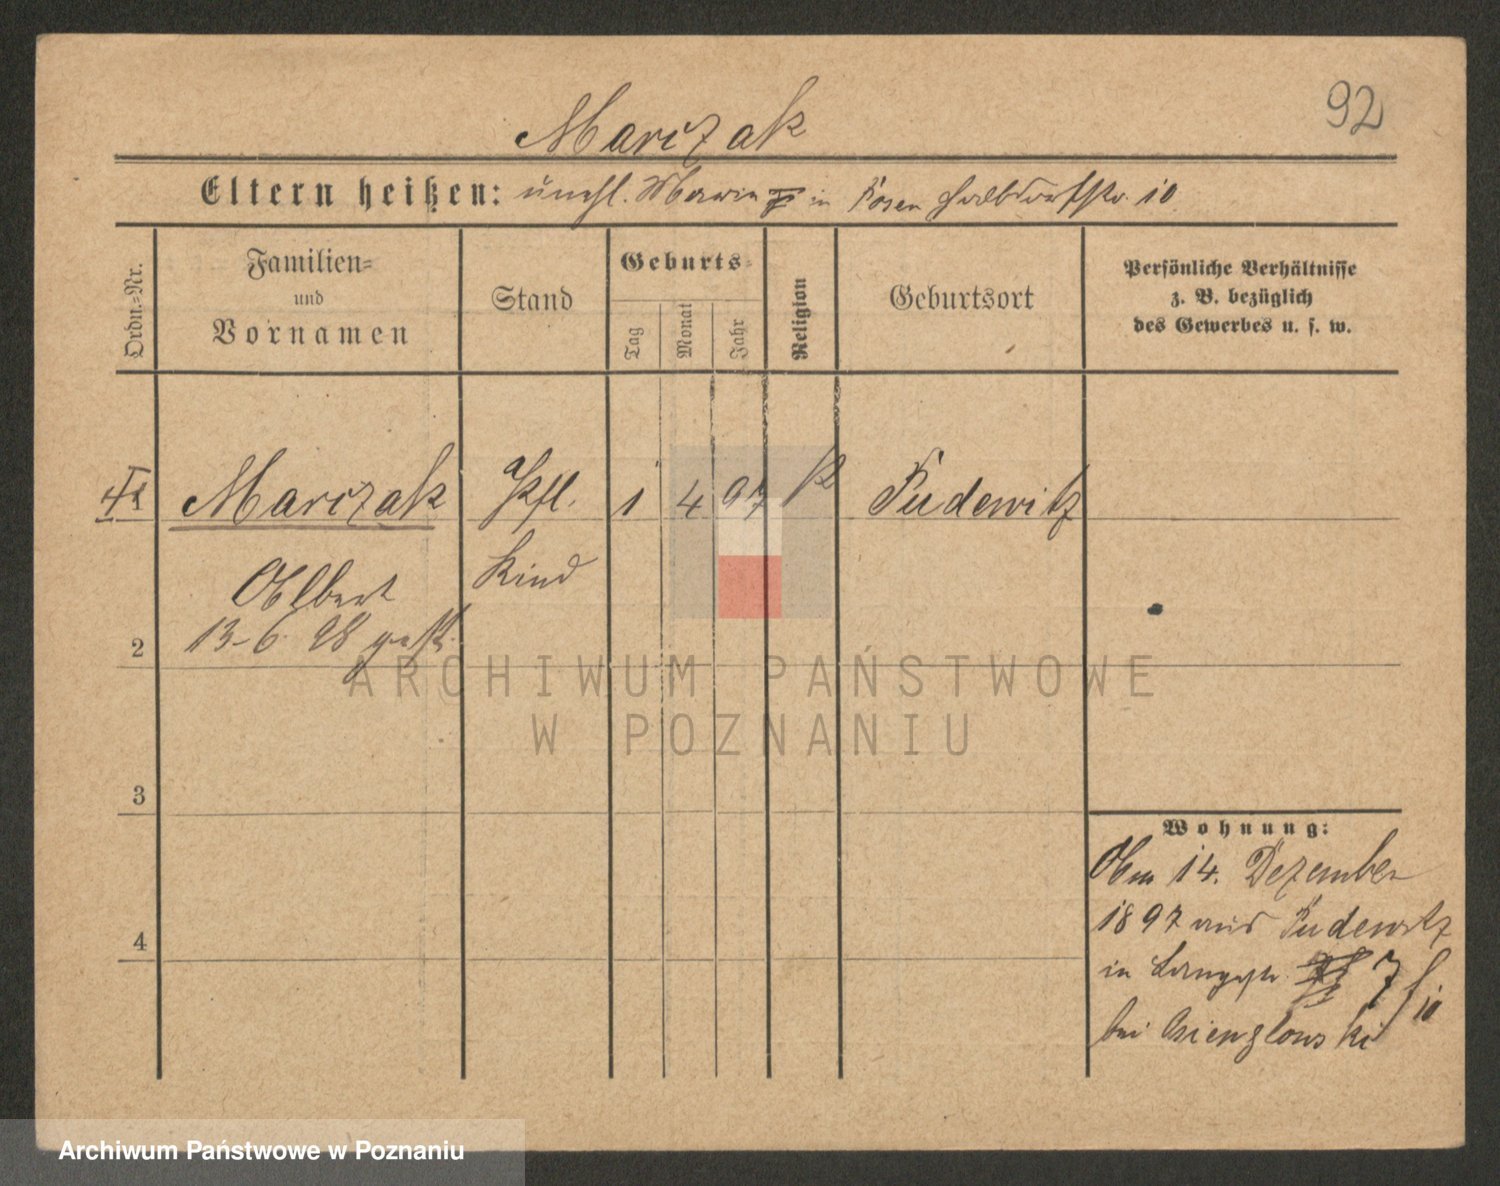 92
Marczak
Eltern heißen: unehl. Maria in Posen Halbdorfstr. 10
Ordn.-Nr.
Familien-
und
Vornamen
Stand
Geburts-
Tag
Monat
Jahr
Religion
Geburtsort
Persönliche Verhältnisse
z. B. bezüglich
des Gewerbes u. s. w.
Marczak
Pfl. 1 4 97 k Pudewitz
Kind
Albert
13-6. 98 gest.
2
ARCHIWUM PAŃSTWOWE
W POZNANIU
3
4
Wohnung:
Am 14. Dezember
1897 aus Pudewitz
in Langestr. 7
bei
Archiwum Państwowe w Poznaniu